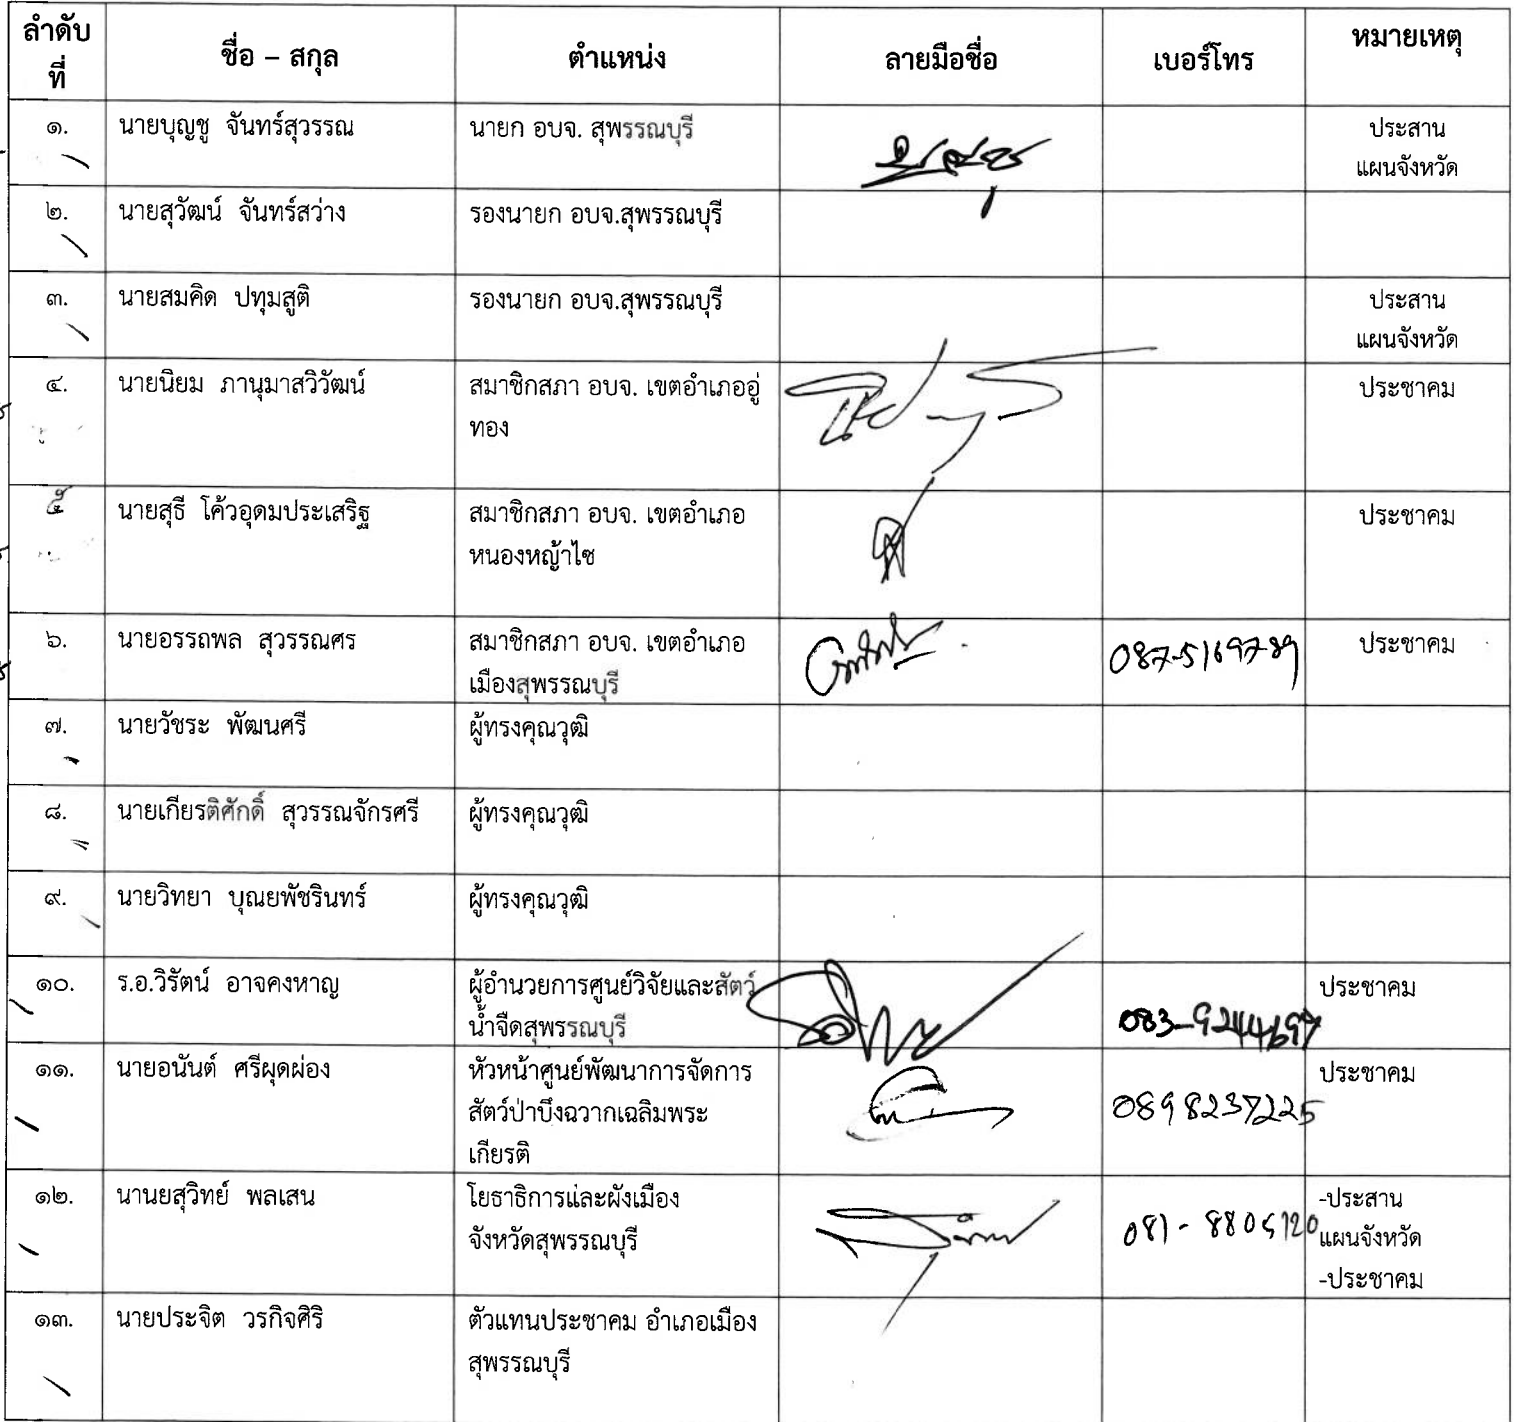 ลำดับ
ที่
ชื่อ – สกุล
ตำแหน่ง
ลายมือชื่อ
เบอร์โทร
หมายเหตุ
๑.
นายบุญชู จันทร์สุวรรณ
นายก อบจ. สุพรรณบุรี
ประสาน
แผนจังหวัด
๒.
นายสุวัฒน์ จันทร์สว่าง
รองนายก อบจ.สุพรรณบุรี
๓.
นายสมคิด ปทุมสูติ
รองนายก อบจ.สุพรรณบุรี
ประสาน
แผนจังหวัด
๔.
นายนิยม ภานุมาสวิวัฒน์
สมาชิกสภา อบจ. เขตอำเภออู่
ทอง
ประชาคม
๕
นายสุธี โค้วอุดมประเสริฐ
สมาชิกสภา อบจ. เขตอำเภอ
หนองหญ้าไซ
ประชาคม
๖.
นายอรรถพล สุวรรณศร
สมาชิกสภา อบจ. เขตอำเภอ
เมืองสุพรรณบุรี
087-5169789
ประชาคม
๗.
นายวัชระ พัฒนศรี
ผู้ทรงคุณวุฒิ
๘.
นายเกียรติศักดิ์ สุวรรณจักรศรี
ผู้ทรงคุณวุฒิ
๙.
นายวิทยา บุณยพัชรินทร์
ผู้ทรงคุณวุฒิ
๑๐.
ร.อ.วิรัตน์ อาจคงหาญ
ผู้อำนวยการศูนย์วิจัยและสัตว์
น้ำจืดสุพรรณบุรี
083-9244697
ประชาคม
๑๑.
นายอนันต์ ศรีผุดผ่อง
หัวหน้าศูนย์พัฒนาการจัดการ
สัตว์ป่าบึงฉวากเฉลิมพระ
เกียรติ
0898237225
ประชาคม
๑๒.
นานยสุวิทย์ พลเสน
โยธาธิการและผังเมือง
จังหวัดสุพรรณบุรี
-ประสาน
แผนจังหวัด
-ประชาคม
๑๓.
นายประจิต วรกิจศิริ
ตัวแทนประชาคม อำเภอเมือง
สุพรรณบุรี